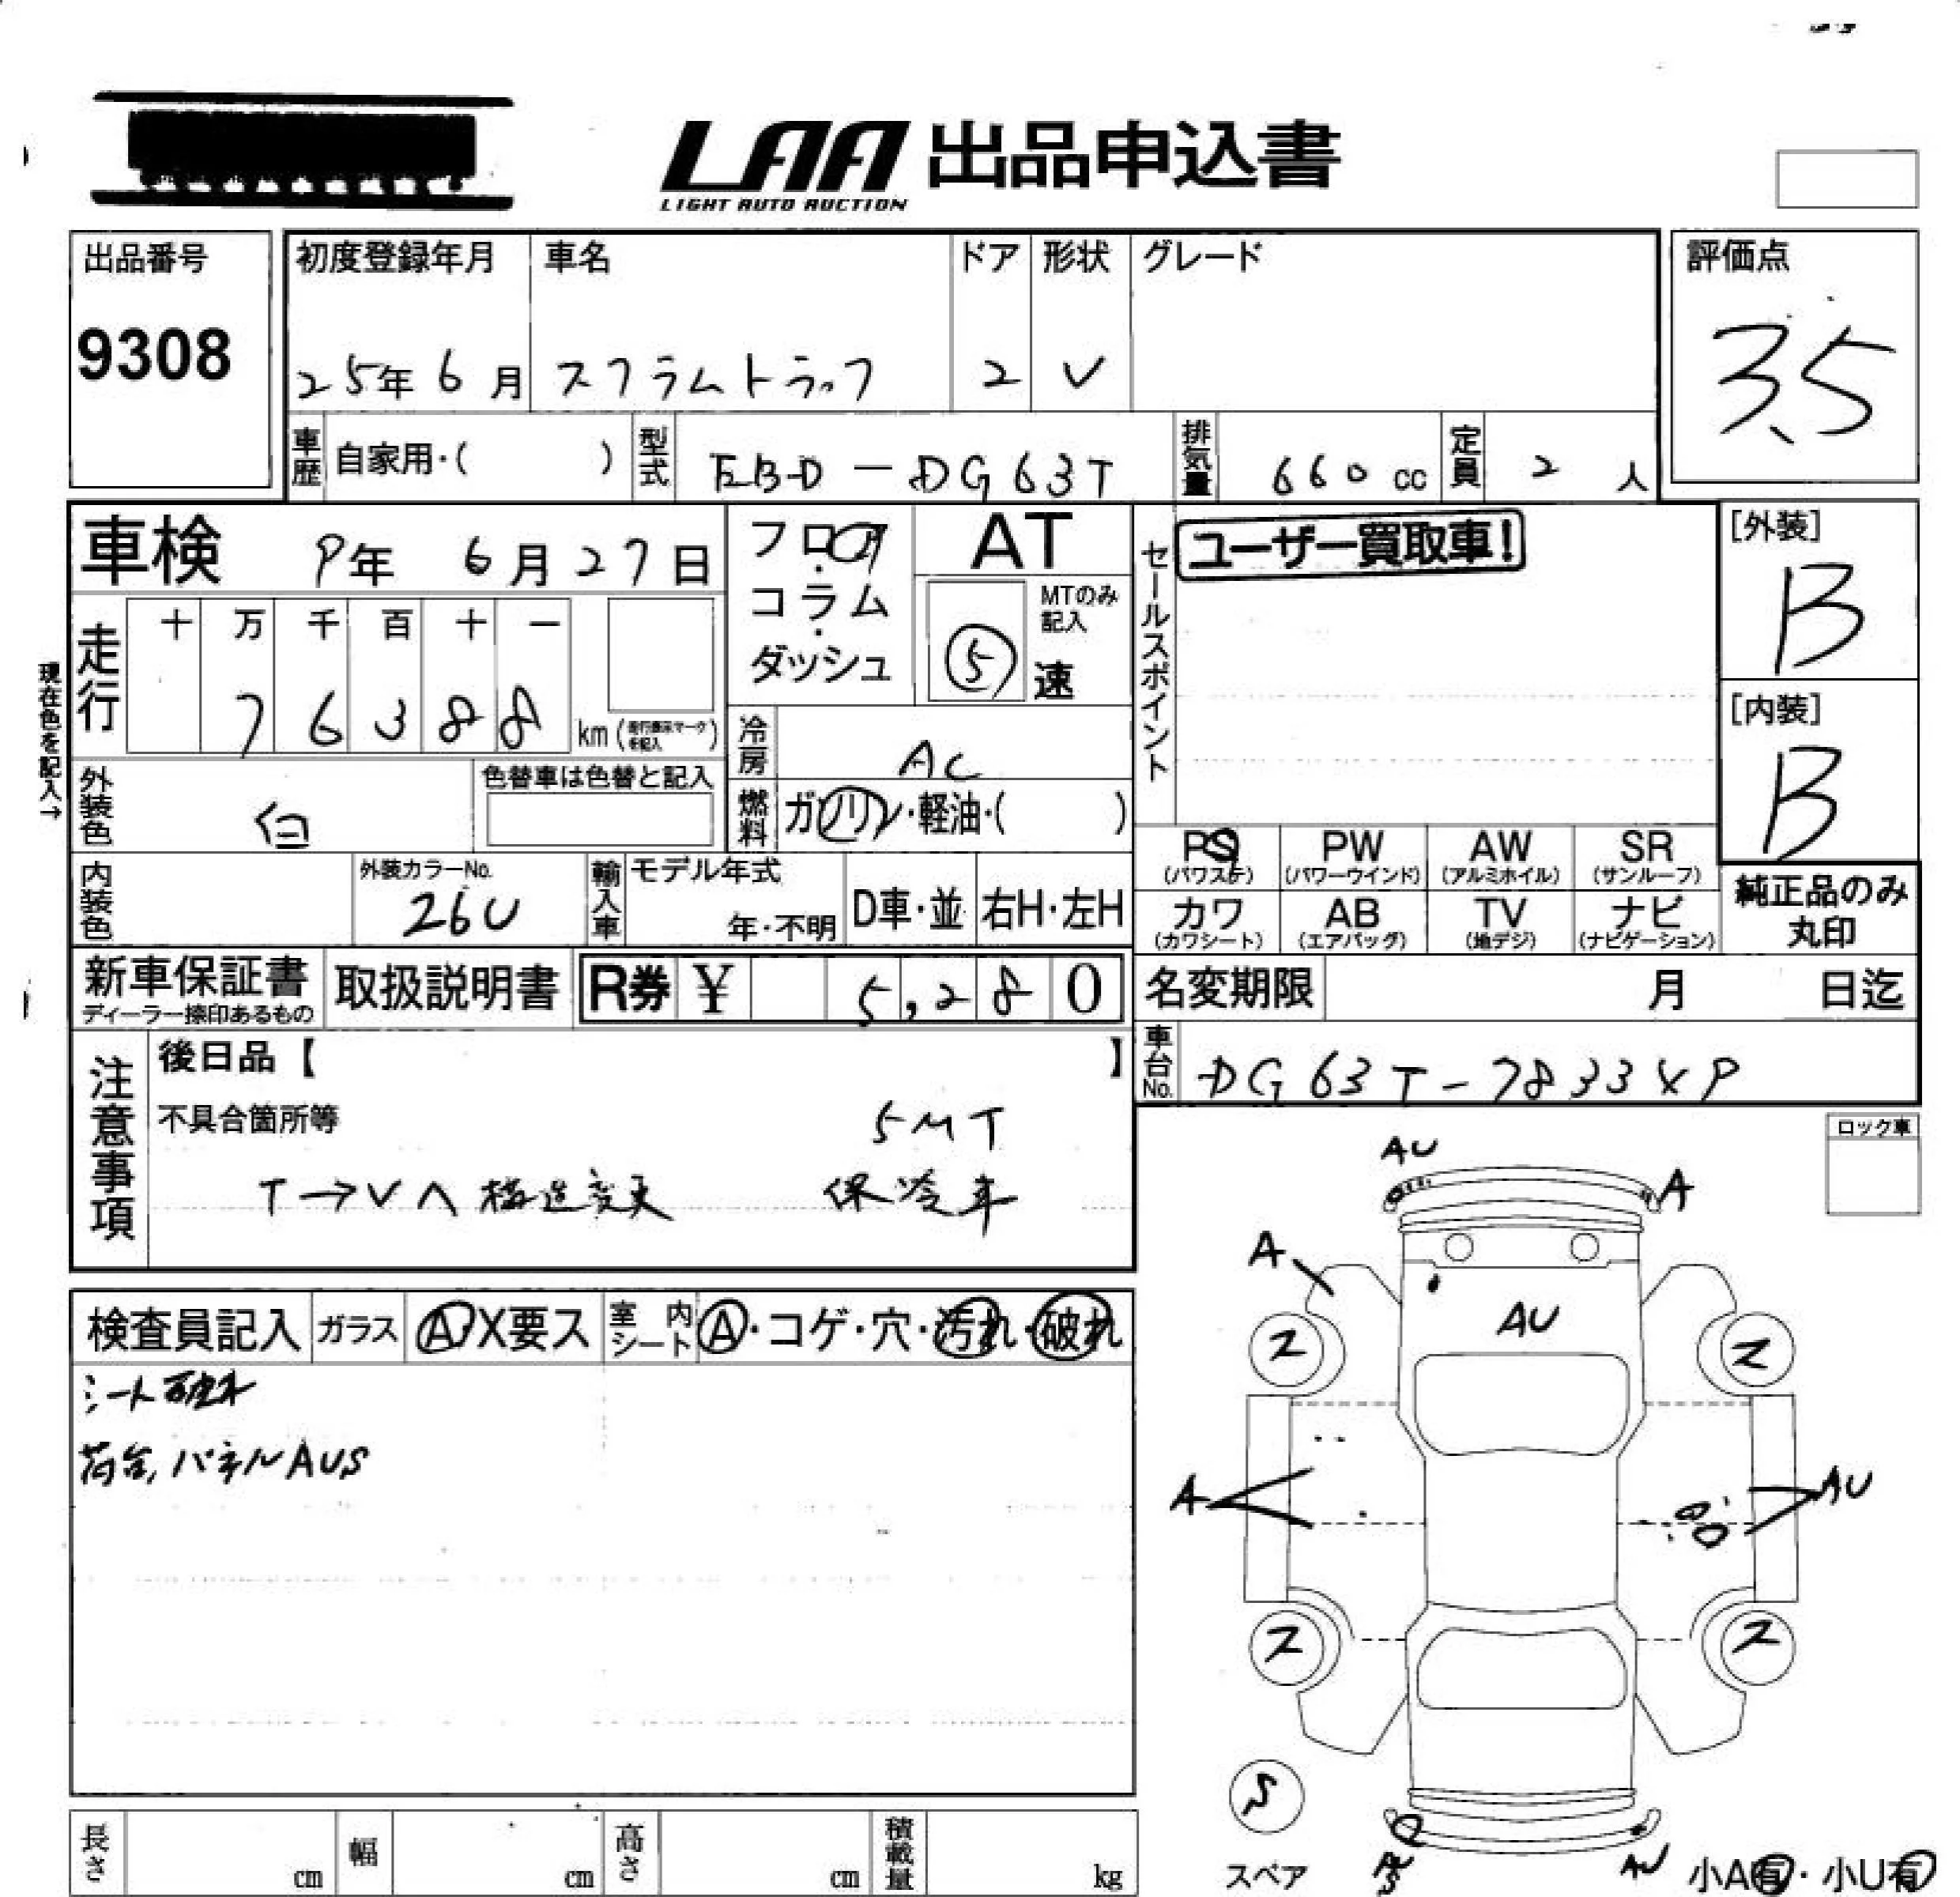 LAA 出品申込書
LIGHT AUTO AUCTION
出品番号
9308
初度登録年月
25年 6月
車名
スクラムトラック
ドア
2
形状
V
グレード
評価点
3.5
車歴 自家用・( )
型式 EBD-DG63T
排気量 660 cc
定員 2 人
車検 9年 6月 27日
フロア・コラム・ダッシュ
AT
MTのみ記入
5 速
セールスポイント
ユーザー買取車!
[外装]
B
[内装]
B
現在色を記入→
走行
十 万 千 百 十 一
7 6 3 8 8 km
冷房 AC
燃料 ガソリン・軽油・( )
外装色 白
色替車は色替と記入
内装色
外装カラーNo.
26U
輸入車
モデル年式
年・不明
D車・並
右H・左H
PS (パワステ)
PW (パワーウインド)
AW (アルミホイル)
SR (サンルーフ)
カワ (カワシート)
AB (エアバッグ)
TV (地デジ)
ナビ (ナビゲーション)
純正品のみ
丸印
新車保証書
ディーラー捺印あるもの
取扱説明書
R券 ¥ 5,280
名変期限 月 日迄
車台No.
注意事項
後日品【 】
不具合箇所等
5MT
T→Vへ 構造変更 保冷車
ロック車
検査員記入
ガラス A・X要ス
室内シート A・コゲ・穴・汚れ・破れ
シート破れ
荷台,パネルAUS
AU
A
A
AU
ス
ス
A
AU
ス
ス
スペア
AU
小A有・小U有
長さ cm
幅 cm
高さ cm
積載量 kg